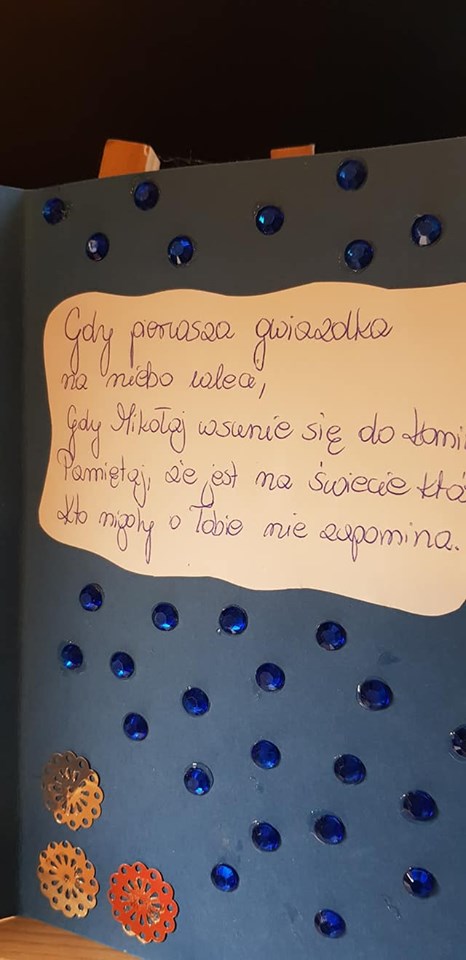 Gdy pierwsza gwiazdka
na niebo wleci,
Gdy Mikołaj wsunie się do komi
Pamiętaj, że jest na świecie ktoś
Kto nigdy o Tobie nie zapomina.